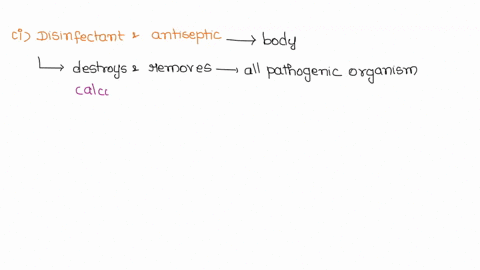 (i) Disinfectant & antiseptic → body
↳ destroys & removes → all pathogenic organism
calc